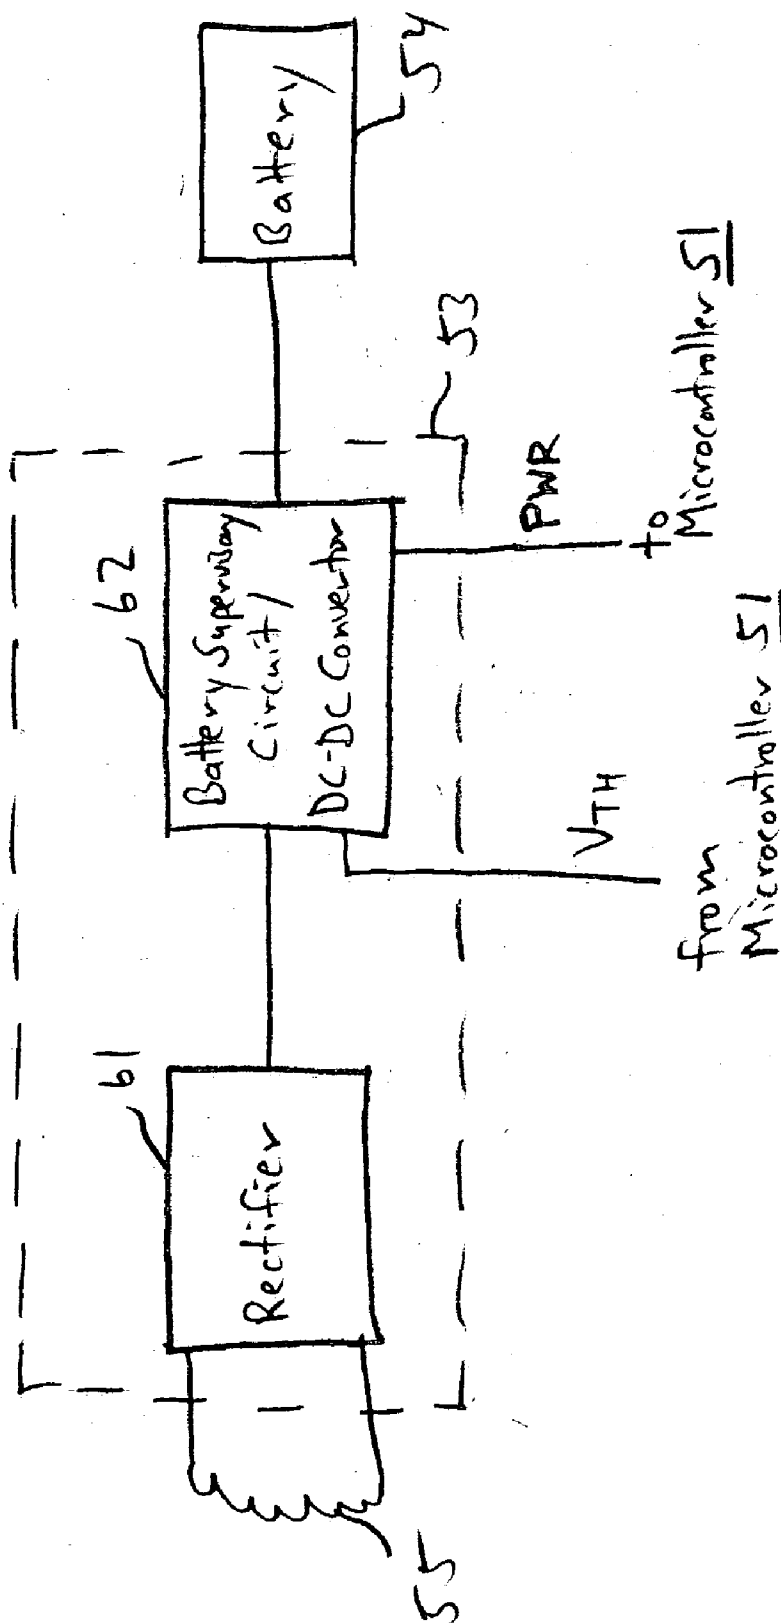 55
61
Rectifier
62
Battery Supervisory
Circuit/
DC-DC Convertor
53
Battery
54
VTH
from
Microcontroller 51
PWR
to
Microcontroller 51